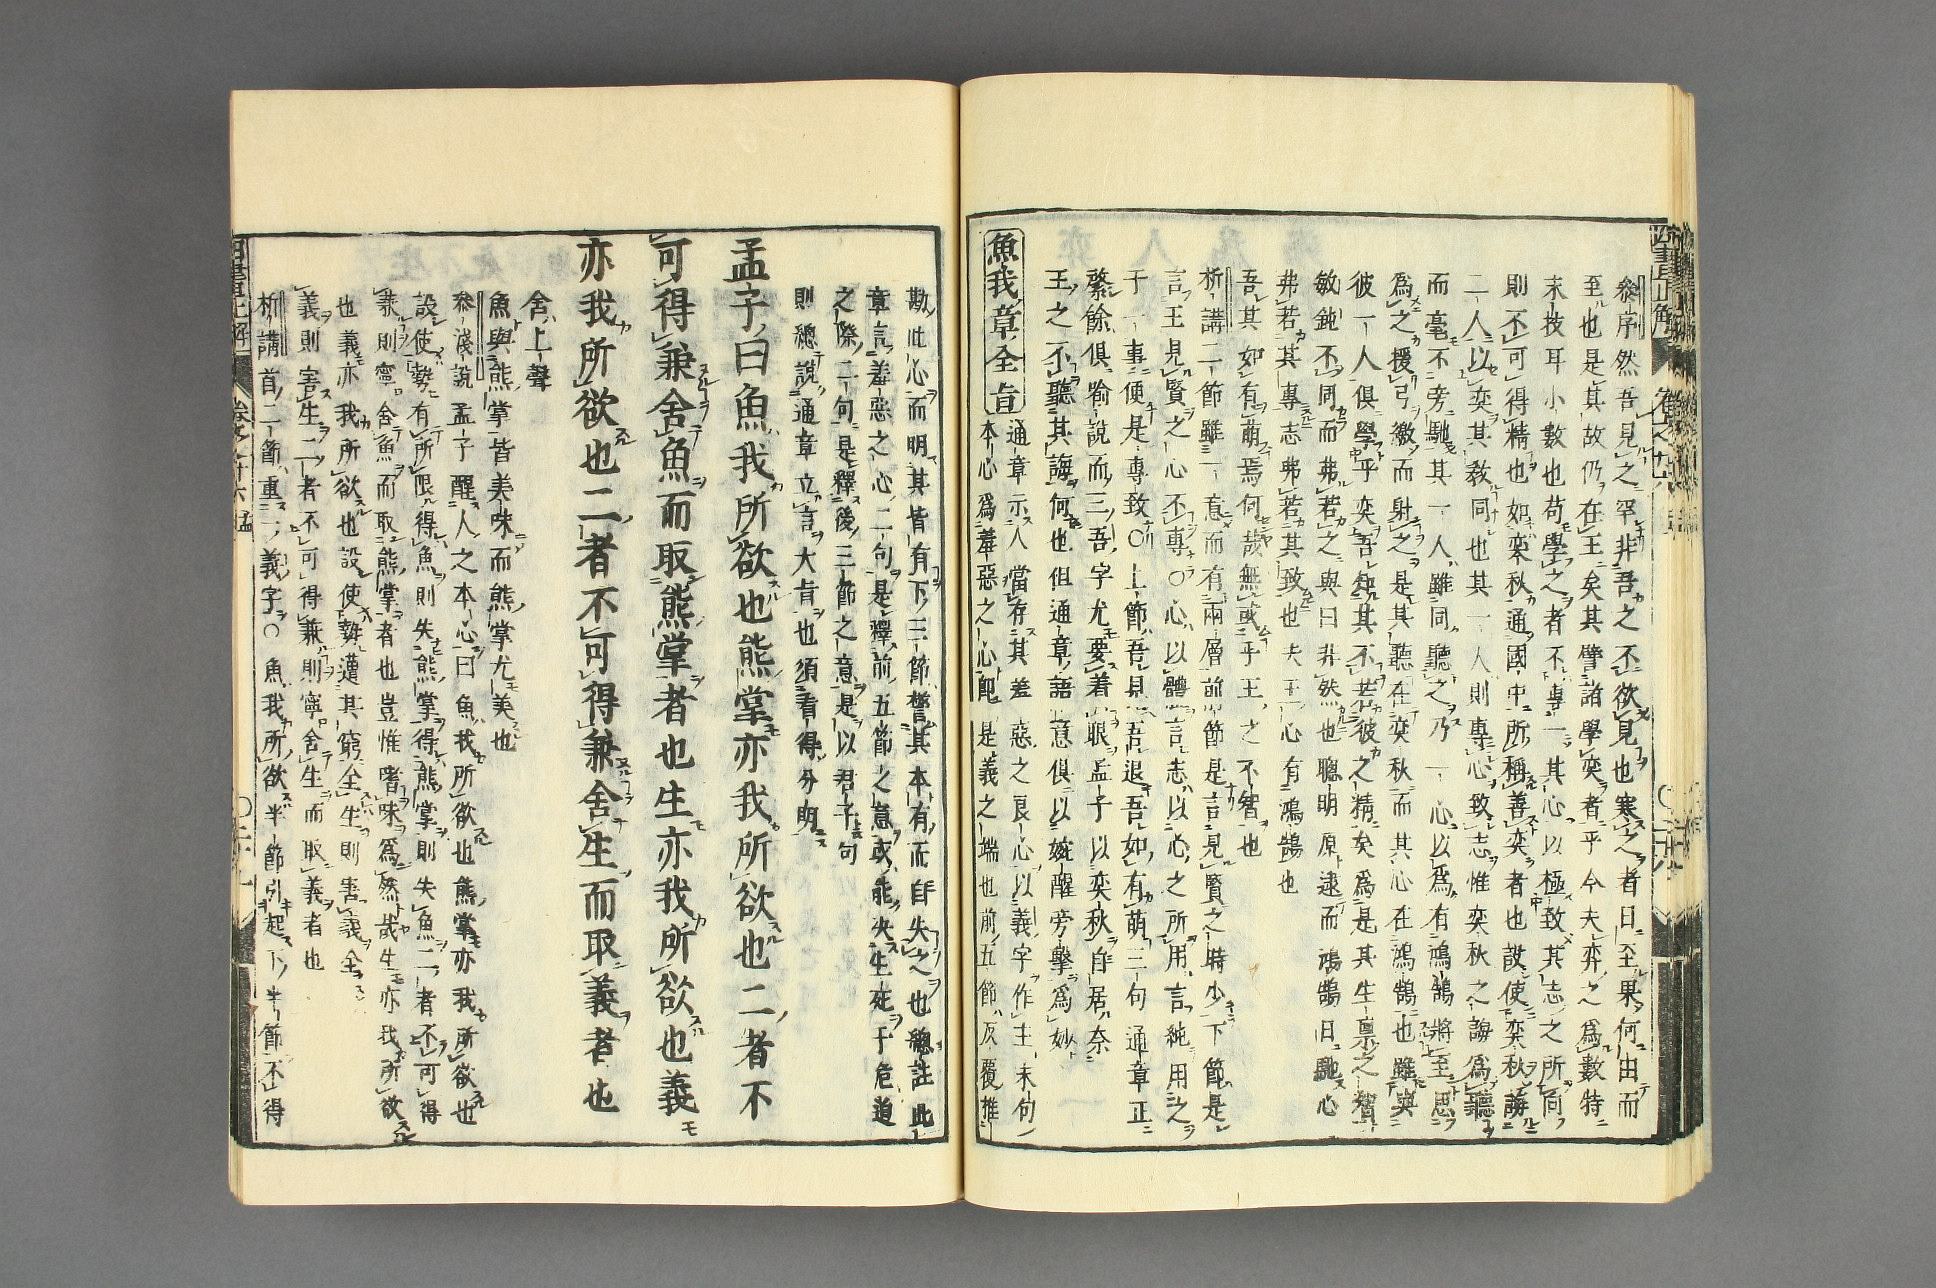 叅序然吾見之罕非吾之不欲見也寒之者日至果何由而
至也是其故仍在王矣其譬諸學奕者乎今夫弈之爲數特
末技耳小數也苟學之者不專一其心以極致其志之所向
則不可得精也如奕秋通國中所稱善奕者也設使奕秋誨
二人以奕其教同也其一人則專心致志惟奕秋之誨爲聽
而毫不旁馳其一人雖同聽之乃一心以爲有鴻鵠將至思
爲之援弓繳而射之是其聽在奕秋而其心在鴻鵠也雖與
彼一人俱學乎奕吾知其不若彼之精矣爲是其生禀之智
敏鈍不同而弗若之與曰非然也聰明原逮而鴻鵠日馳心
弗若其專志弗若其致也夫王心有鴻鵠也
吾其如有萌焉何哉無或乎王之不智也
析講二節雖一意而有兩層前節是言見賢之時少下節是
言王見賢之心不專〇心以體言志以心之所用言純用之
于一事便是專致〇上節吾見吾退吾如有萌三句通章正
綮餘俱喻說而三吾字尤要着眼孟子以奕秋自居奈
王之不聽其誨何也但通章語意俱以婉醒旁擊爲妙
魚我章全旨
通章示人當存其羞惡之良心以義字作主末句
本心爲羞惡之心卽是義之端也前五節反覆推
勘此心而明其皆有下三節警其本有而自失之也總註此
章言羞惡之心二句是釋前五節之意或能决生死于危迫
之際二句是釋後三節之意是以君子句
則總說通章立言大旨也須看得分明
孟子曰魚我所欲也熊掌亦我所欲也二者不
可得兼舍魚而取熊掌者也生亦我所欲也義
亦我所欲也二者不可得兼舍生而取義者也
舍上聲
魚與熊掌皆美味而熊掌尤美也
叅淺說孟子醒人之本心曰魚我所欲也熊掌亦我所欲也
設使勢有所限得魚則失熊掌得熊掌則失魚二者不可得
兼則寧舍魚而取熊掌者也豈惟嗜味爲然哉生亦我所欲
也義亦我所欲也設使勢遭其窮全生則害義全
義則害生二者不可得兼則寧舍生而取義者也
析講首二節重一義字〇魚我所欲半節引起下半節不得